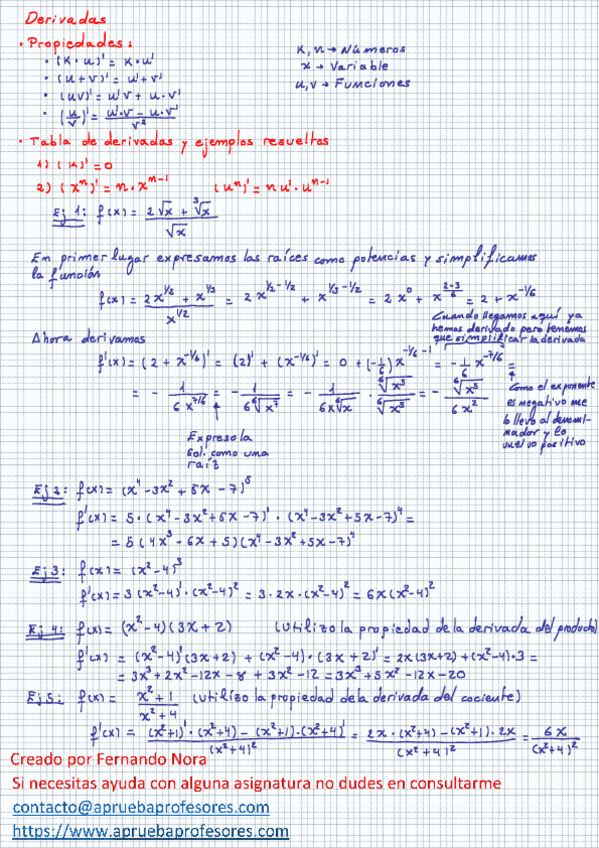 Derivadas
• Propiedades:
• (K·u)' = K·u'
K, n → Números
• (u+v)' = u' + v'
x → Variable
• (uv)' = u'v + u·v'
u, v → Funciones
• (u/v)' = (u'·v - u·v')/v²
• Tabla de derivadas y ejemplos resueltos
1) (K)' = 0
2) (xⁿ)' = n·xⁿ⁻¹ (uⁿ)' = n u'·uⁿ⁻¹
Ej 1: f(x) = (2√x + ³√x)/√x
En primer lugar expresamos las raíces como potencias y simplificamos
la función
f(x) = (2x^(1/2) + x^(1/3))/x^(1/2) = 2x^(1/2-1/2) + x^(1/3-1/2) = 2x⁰ + x^((2-3)/6) = 2 + x^(-1/6)
Cuando llegamos aquí ya
hemos derivado pero tenemos
que simplificar la derivada
Ahora derivamos
f'(x) = (2 + x^(-1/6))' = (2)' + (x^(-1/6))' = 0 + (-1/6)x^(-1/6 -1) = -1/6 x^(-7/6) =
= - 1/(6x^(7/6)) = - 1/(6 ⁶√x⁷) = - 1/(6x ⁶√x) · ⁶√x⁵/⁶√x⁵ = - ⁶√x⁵/(6x²)
Como el exponente
es negativo me
lo llevo al denomi-
nador y lo
vuelvo positivo
Expreso la
sol. como una
raíz
Ej 2: f(x) = (x⁴ - 3x² + 5x - 7)⁵
f'(x) = 5·(x⁴ - 3x² + 5x - 7)'·(x⁴ - 3x² + 5x - 7)⁴ =
= 5(4x³ - 6x + 5)(x⁴ - 3x² + 5x - 7)⁴
Ej 3: f(x) = (x² - 4)³
f'(x) = 3(x² - 4)'·(x² - 4)² = 3·2x·(x² - 4)² = 6x(x² - 4)²
Ej. 4: f(x) = (x² - 4)(3x + 2) (Utilizo la propiedad de la derivada del producto)
f'(x) = (x² - 4)'(3x + 2) + (x² - 4)·(3x + 2)' = 2x(3x + 2) + (x² - 4)·3 =
= 3x³ + 2x² - 12x - 8 + 3x² - 12 = 3x³ + 5x² - 12x - 20
Ej 5: f(x) = (x² + 1)/(x² + 4) (utilizo la propiedad de la derivada del cociente)
f'(x) = ((x² + 1)'·(x² + 4) - (x² + 1)·(x² + 4)')/(x² + 4)² = (2x·(x² + 4) - (x² + 1)·2x)/(x² + 4)² = 6x/(x² + 4)²
Creado por Fernando Nora
Si necesitas ayuda con alguna asignatura no dudes en consultarme
contacto@apruebaprofesores.com
https://www.apruebaprofesores.com